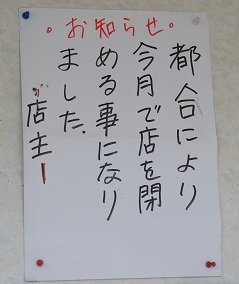 ・お知らせ・
都合により
今月で店を閉
める事になり
ました。
店主